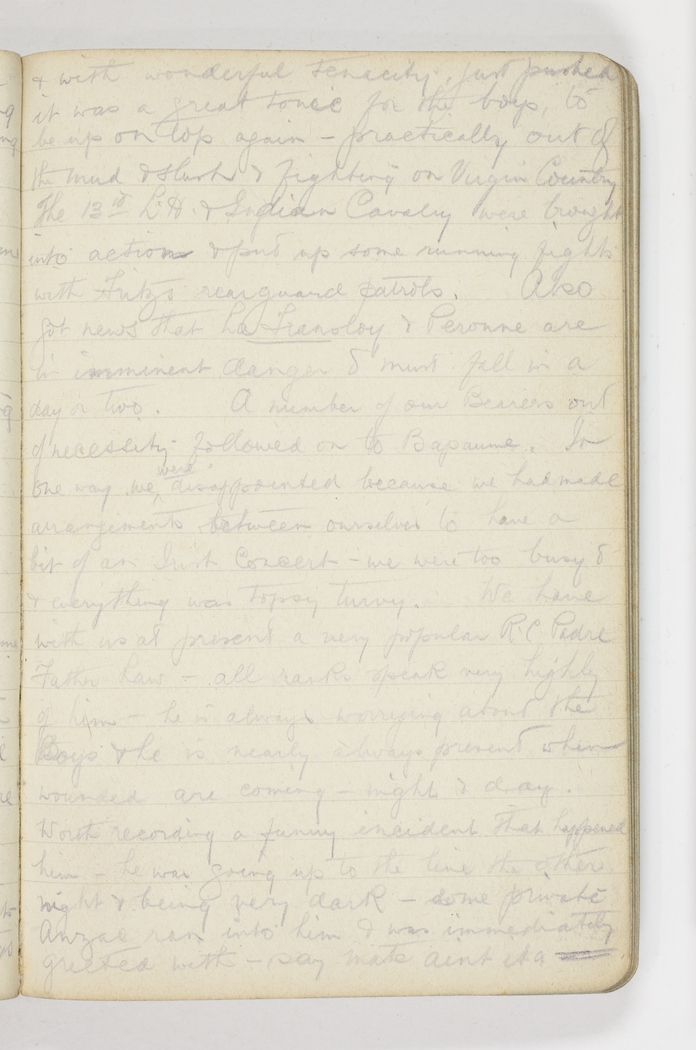 & with wonderful tenacity, just pushed
it was a great tonic for the boys, to
be up on top again - practically out of
the mud & slush & fighting on Virgin Country
The 13th L.H. & Indian Cavalry were brought
into action & put up some running fights
with Fritzs rearguard patrols. Also
got news that La Transloy & Peronne are
in imminent danger & must fall in a
day or two. A number of our Bearers out
of necessity followed on to Bapaume. In
one way we were disappointed because we had made
arrangements between ourselves to have a
bit of an Irish Concert - we were too busy &
& everything was topsy turvy. We have
with us at present a very popular R.C Padre
Father Law - all ranks speak very highly
of him - he is always worrying about the
Boys & he is nearly always present when
wounded are coming - night & day.
Worth recording a funny incident that happened
him - he was going up to the line the other
night & being very dark - some private
Anzac ran into him & was immediately
greeted with - say mate aint it a